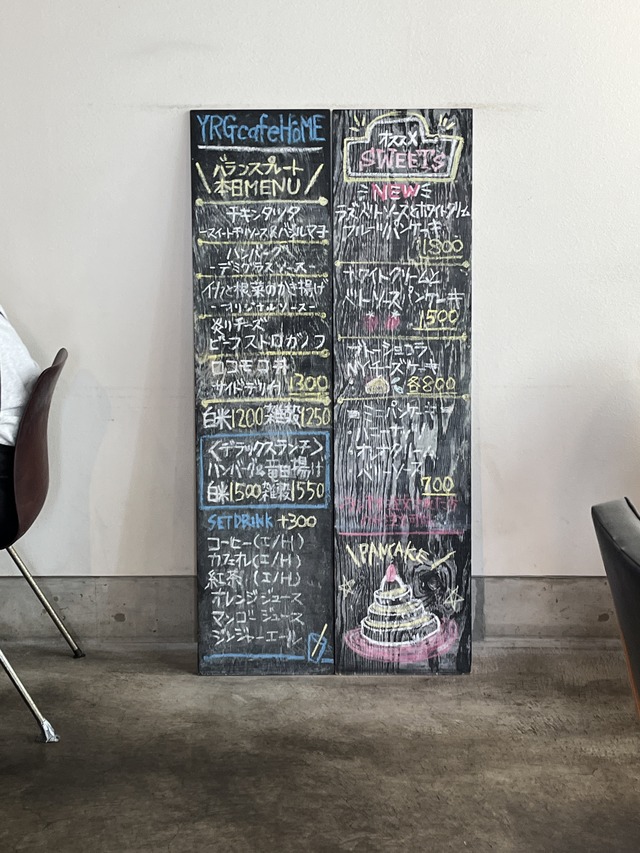 YRGcafeHOME
バランスプレート
本日MENU
チキンタツタ
-スイートチリソース&バジルマヨ
ハンバーグ
-デミグラスソース-
イカと根菜のかき揚げ
-オリジナルソース-
炙りチーズ
ビーフストロガノフ
ロコモコ丼
サイドデリ付 1300
白米1200 雑穀1250
<デラックスランチ>
ハンバーグ&竜田揚げ
白米1500 雑穀1550
SETDRINK +300
コーヒー(I/H)
カフェオレ(I/H)
紅茶(I/H)
オレンジジュース
マンゴージュース
ジンジャーエール
オススメ
SWEETS
NEW
ラズベリーソース&ホワイトクリーム
フルーツパンケーキ
1800
ホワイトクリームと
ベリーソースパンケーキ
1500
ガトーショコラ
NYチーズケーキ
各800
ミニパンケーキ
・ハニーナッツ
・ベリーソース
700
PANCAKE